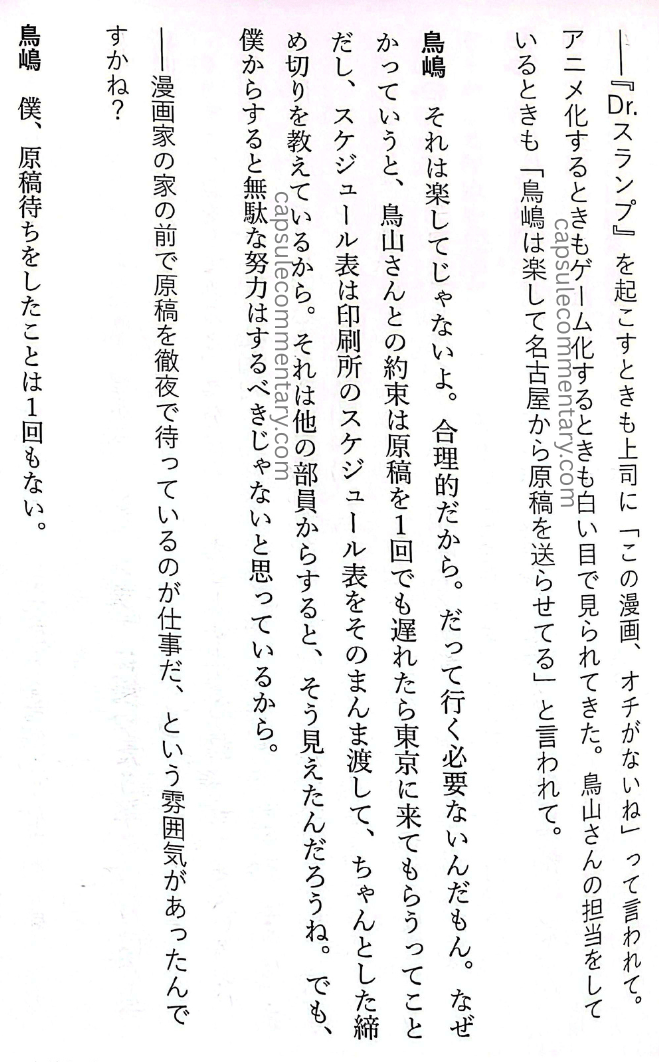 ――『Dr.スランプ』を起こすときも上司に「この漫画、オチがないね」って言われて。
アニメ化するときもゲーム化するときも白い目で見られてきた。鳥山さんの担当をして
いるときも「鳥嶋は楽して名古屋から原稿を送らせてる」と言われて。
鳥嶋　それは楽してじゃないよ。合理的だから。だって行く必要ないんだもん。なぜ
かっていうと、鳥山さんとの約束は原稿を1回でも遅れたら東京に来てもらうってこと
だし、スケジュール表は印刷所のスケジュール表をそのまんま渡して、ちゃんとした締
め切りを教えているから。それは他の部員からすると、そう見えたんだろうね。でも、
僕からすると無駄な努力はするべきじゃないと思っているから。
――漫画家の家の前で原稿を徹夜で待っているのが仕事だ、という雰囲気があったんで
すかね？
鳥嶋　僕、原稿待ちをしたことは1回もない。
capsulecommentary.com
capsulecommentary.com